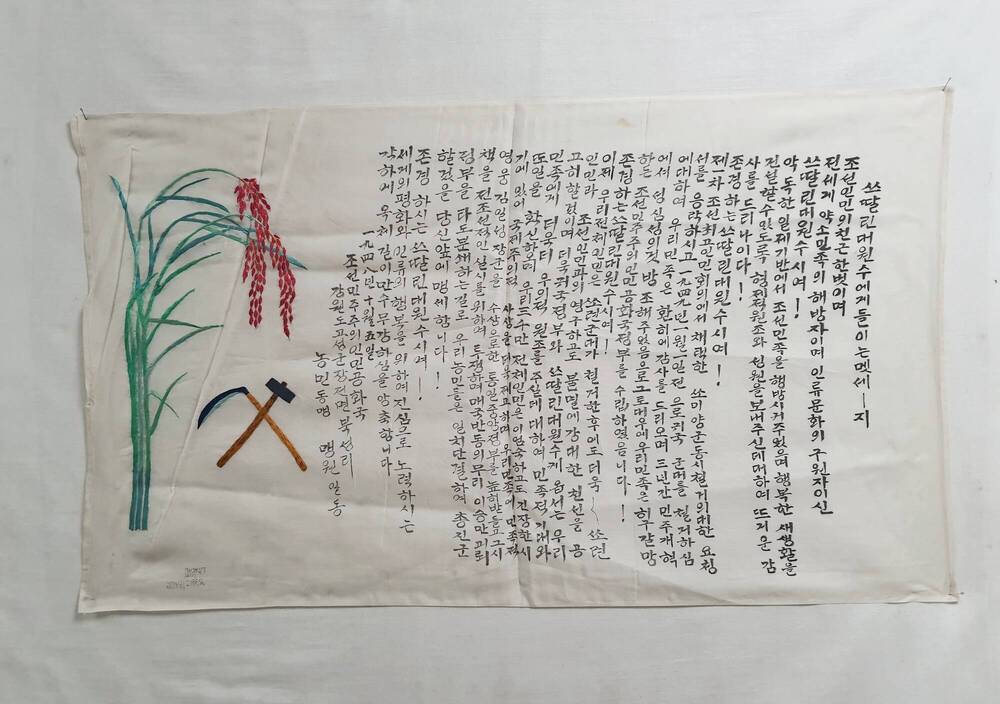 쓰딸린대원수에게들이는멧세—지
조선인민의친근한벗이며
전세계 약소민족의 해방자이며 인류문화의 구원자이신
쓰딸린대원수시여!
악독한 일제기반에서 조선민족을 해방시켜주었으며 행복한 새생활을
건설할수있도록 형제적원조와 성원을보내주신데대하여 뜨거운 감
사를 드리나이다!
존경하는쓰딸린대원수시여!
제一차 조선최고인민회의에서 채택한 쏘미양군동시철거의대한 요청
서를 응락하시고 一九四九년一월一일전으로귀국 군대를 철거하심
에대하여 우리민족은 환희에감사를 드리오며 三년간 민주개혁
에서 성심성의것방조해주었음으로그토대우에우리민족은 히구갈망
하든 조선민주주의인민공화국정부를 수립하였읍니다!
존경하는쓰딸린대원수시여!
이제 우리전체인민은 쏘련군대가 철거한후에도더욱 쏘련
인민과 조선인민과의영구하고도 불멸에강대한 친선을 공
고히할것이며 더욱귀국정부와 쓰딸린대원수께옵서는 우리
민족에게 더욱더 우의적 원조를주실데 대하여 민족적기대와
또한 확신하오며 우리三千만 전체인민은 엄숙하고도긴장한시
기에있어 국제주의적 사상을더욱제고하며 우리민족에 민족적
영웅 김일성장군을 수상으로한 통일중앙정부를높히받들고그시
책을 전조선적인실시를위하여 투쟁하며매국반동의무리 이승만괴뢰
정부를 타도분쇄하는길로 우리농민들은 일치단결하여 총진군
할것을 당신앞에 맹세합니다!
존경하시는쓰딸린대원수시여!
세계의평화와 인류의행복을 위하여진심으로 노력하시는
각하에 옥체길이만수무강하심을앙축합니다
一九四八년十월五일
조선민주주의인민공화국
강원도고성군장전면북성리
농민동맹 맹원일동